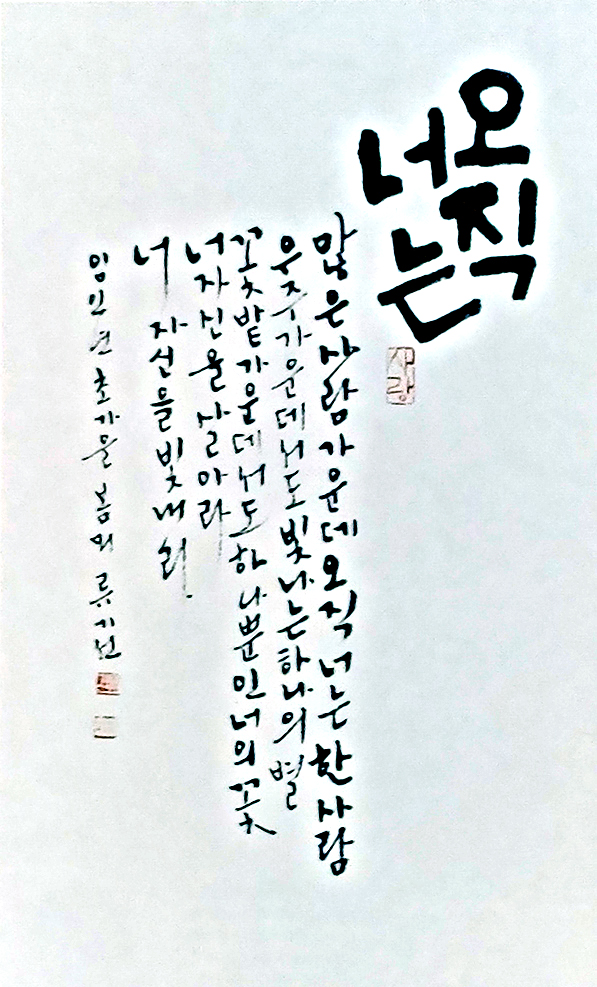 오직
너는
사랑
많은 사람 가운데 오직 너는 한 사람
우주 가운데서도 빛나는 하나의 별
꽃밭 가운데서도 하나뿐인 너의 꽃
너 자신을 살아라
너 자신을 빛내라.
임인년 초가을 봄뫼 류기선